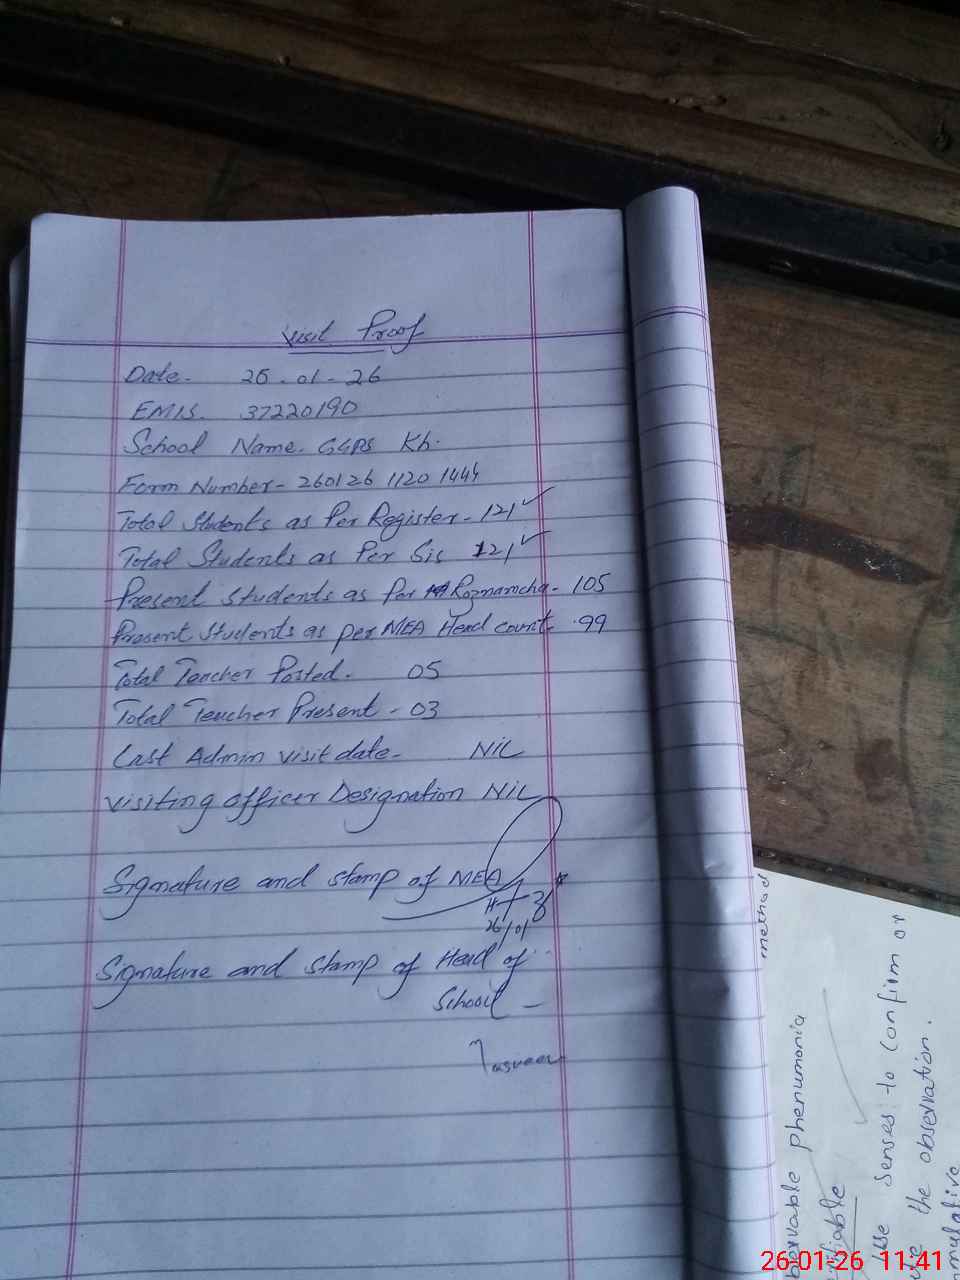 Visit Proof
Date. 26-01-26
EMIS. 37220190
School Name. GGPS Kh.
Form Number- 260126 1120 1444
Total Students as Per Register- 121 ✓
Total Students as Per Sis 121 ✓
Present Students as Per Roznamcha- 105
Present Students as per MEA Head count- 99
Total Teacher Posted. 05
Total Teacher Present - 03
Last Admin visit date- NiL
Visiting officer Designation NiL
Signature and stamp of MEA
26/01
Signature and stamp of Head of
School -
method
phenumonia
Use Senses to confirm or
the observation.
26-01-26 11:41